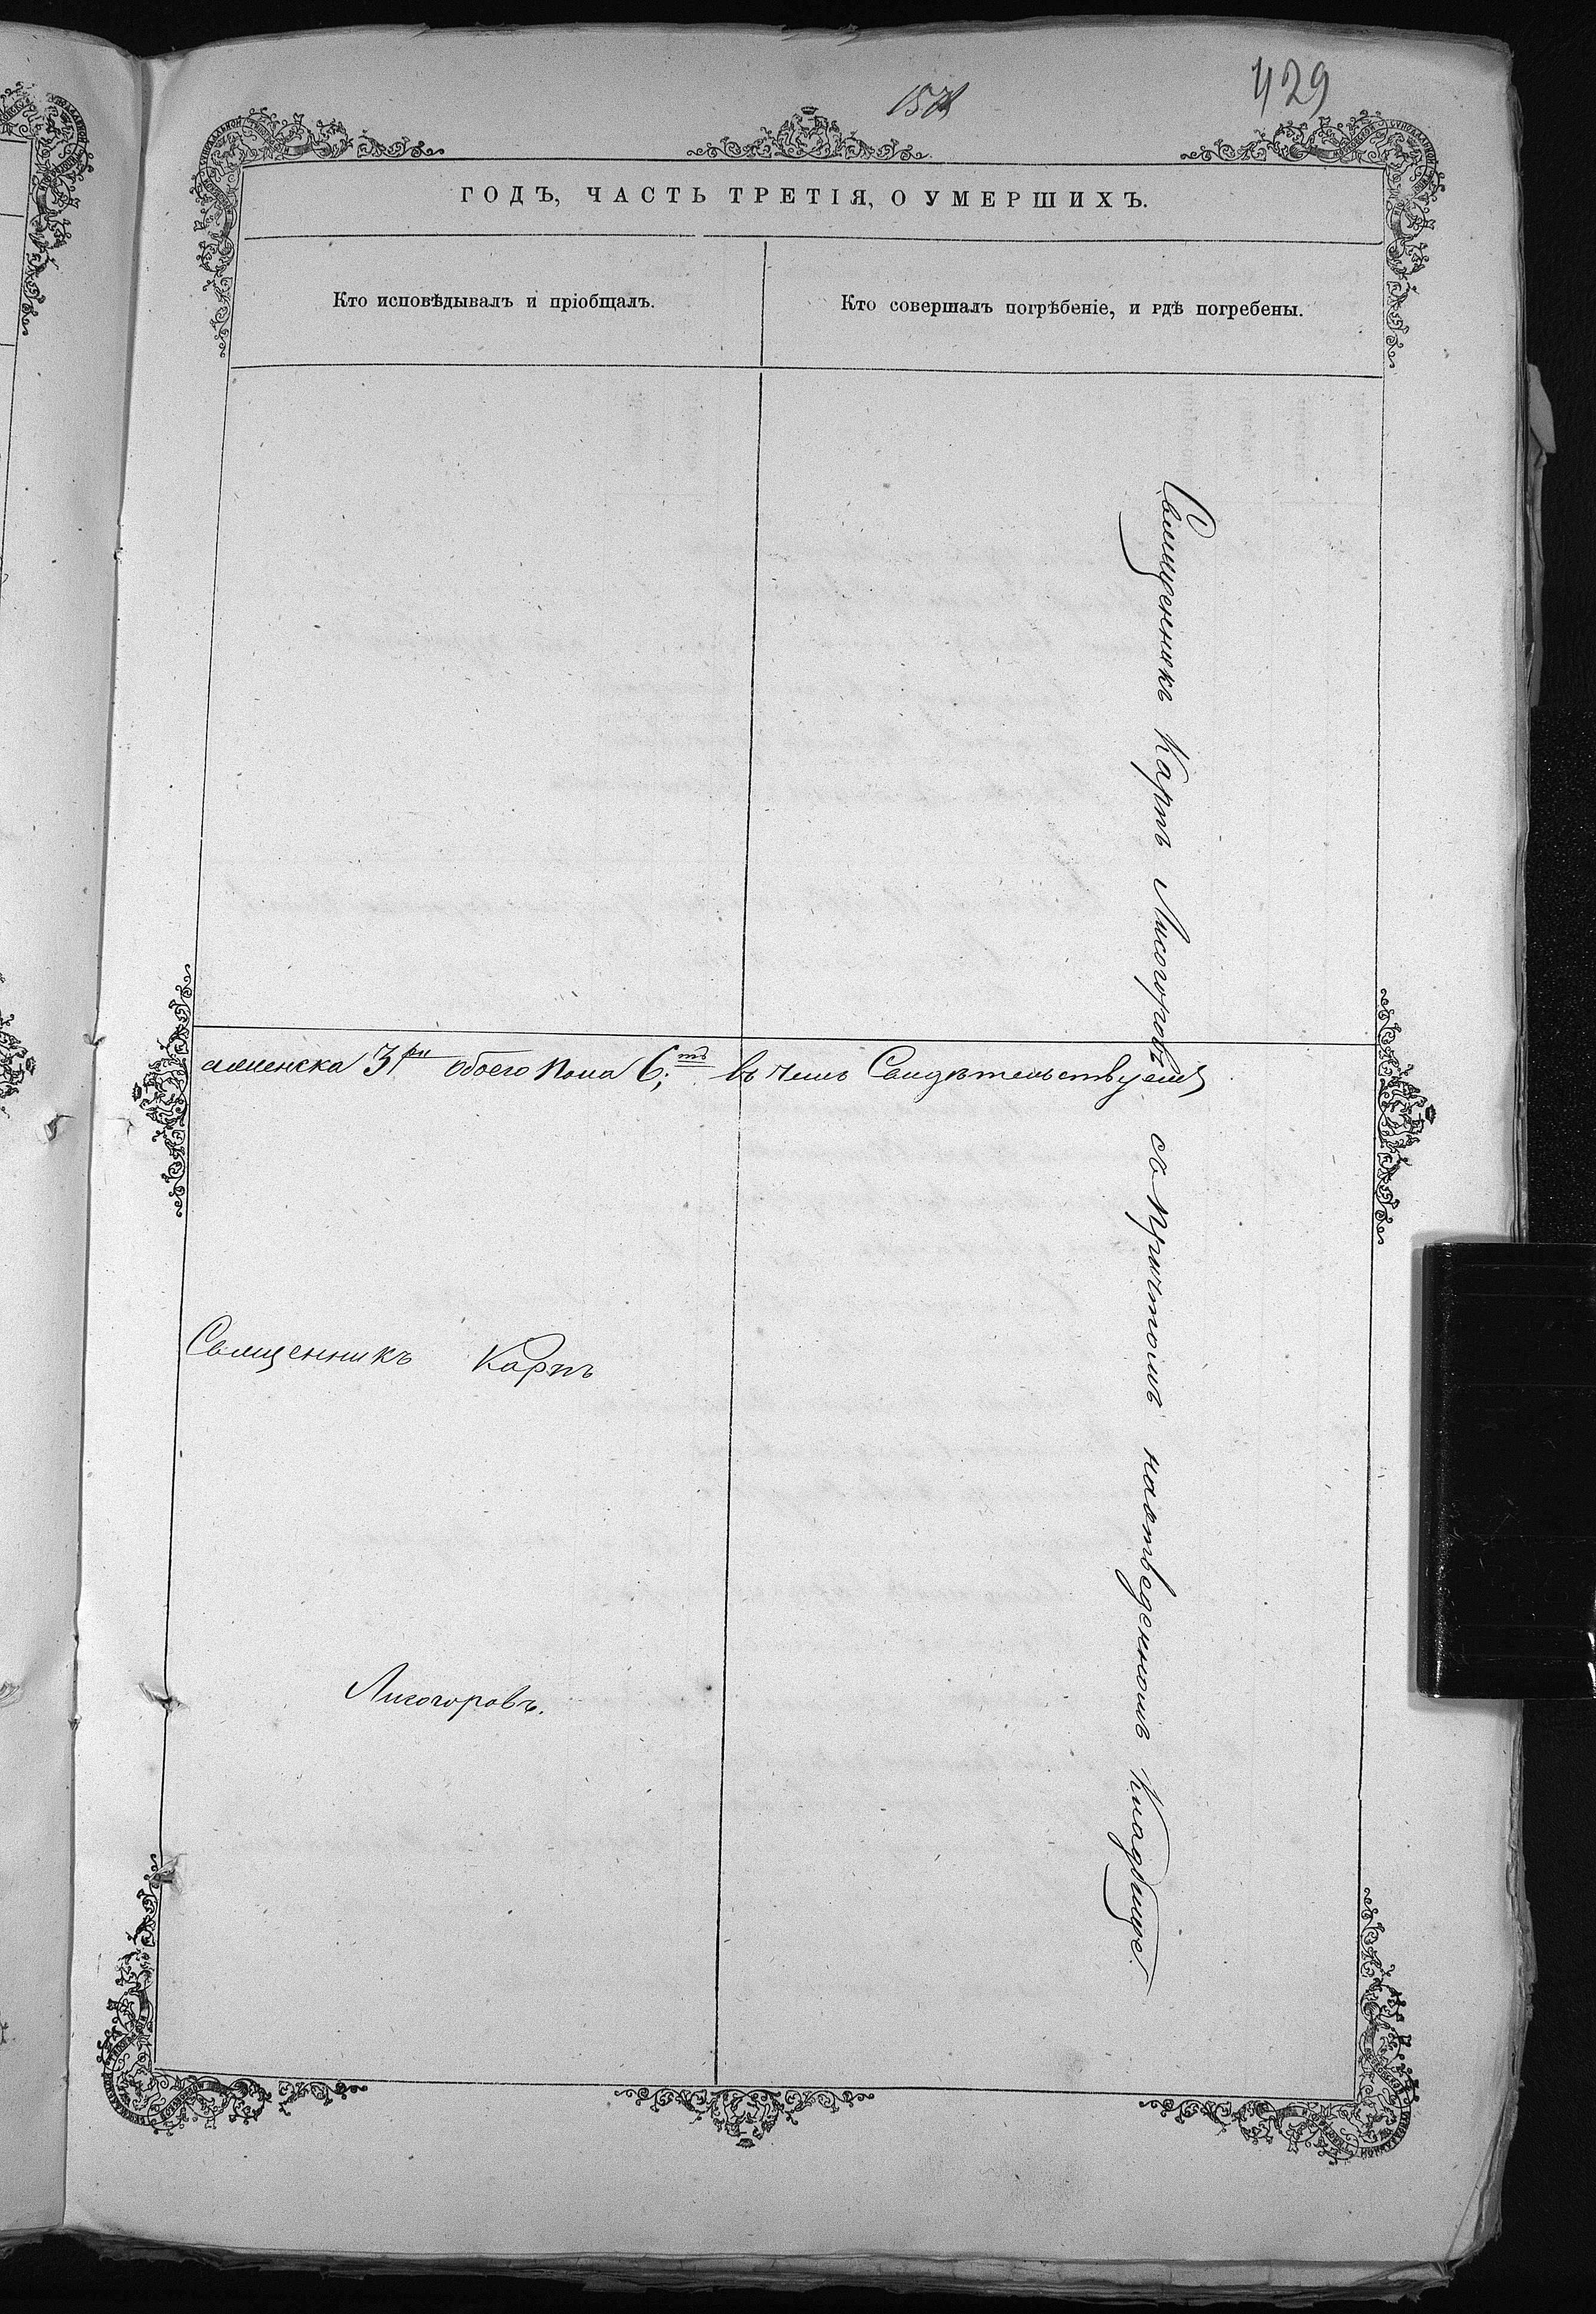 429
ГОДЪ, ЧАСТЬ ТРЕТІЯ, О УМЕРШИХЪ.
Кто исповѣдывалъ и пріобщалъ.
Кто совершалъ погрѣбеніе, и гдѣ погребены.
Священникъ Карпъ Лисогоровъ съ причтомъ наотведенномъ кладбище.
аженска 3ри обоего пола 6;ть въ чемъ Свидѣтельствуемъ
Священникъ Карпъ
Лисогоровъ.